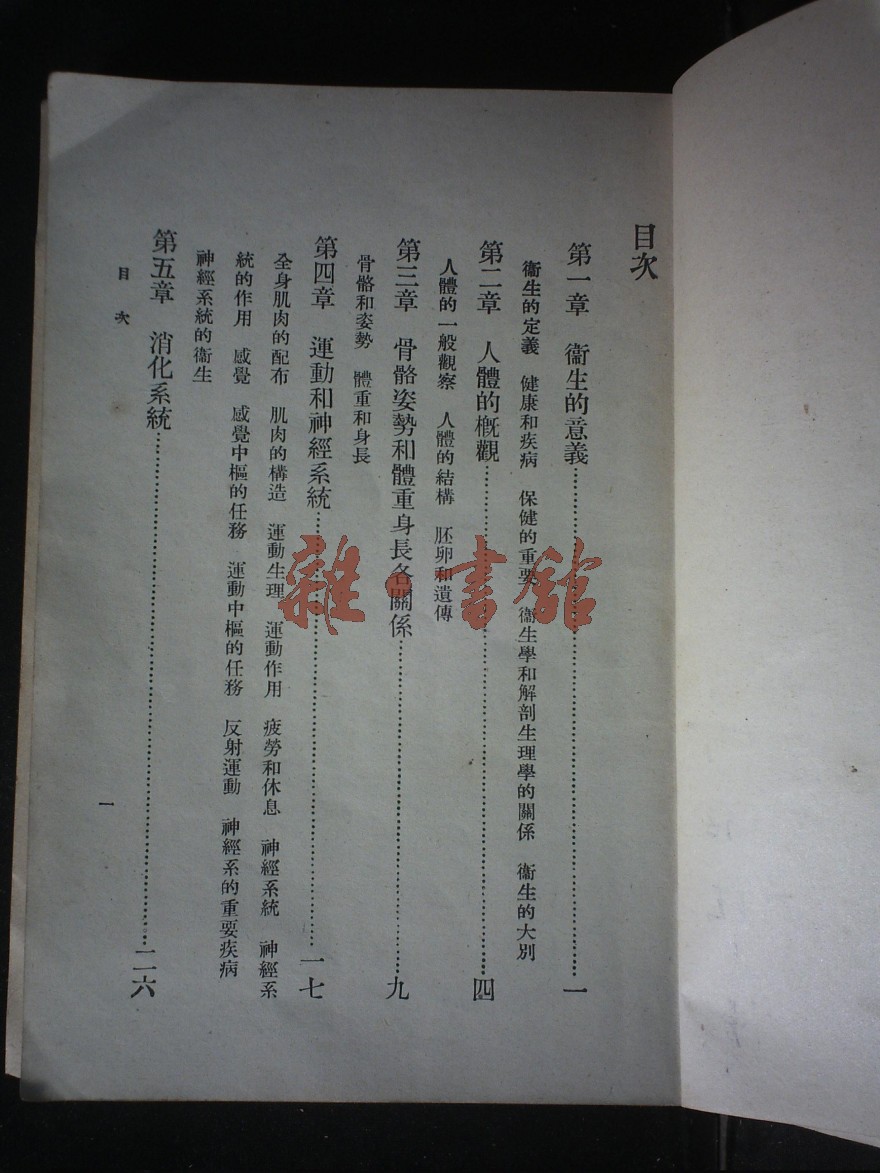 目次
第一章　衞生的意義…………一
衞生的定義　健康和疾病　保健的重要　衞生學和解剖生理學的關係　衞生的大別
第二章　人體的概觀…………四
人體的一般觀察　人體的結構　胚卵和遺傳
第三章　骨骼姿勢和體重身長各關係…………九
骨骼和姿勢　體重和身長
第四章　運動和神經系統…………一七
全身肌肉的配布　肌肉的構造　運動生理　運動作用　疲勞和休息　神經系統　神經系
統的作用　感覺　感覺中樞的任務　運動中樞的任務　反射運動　神經系的重要疾病
神經系統的衞生
第五章　消化系統…………二六
目次
一
雜·書館